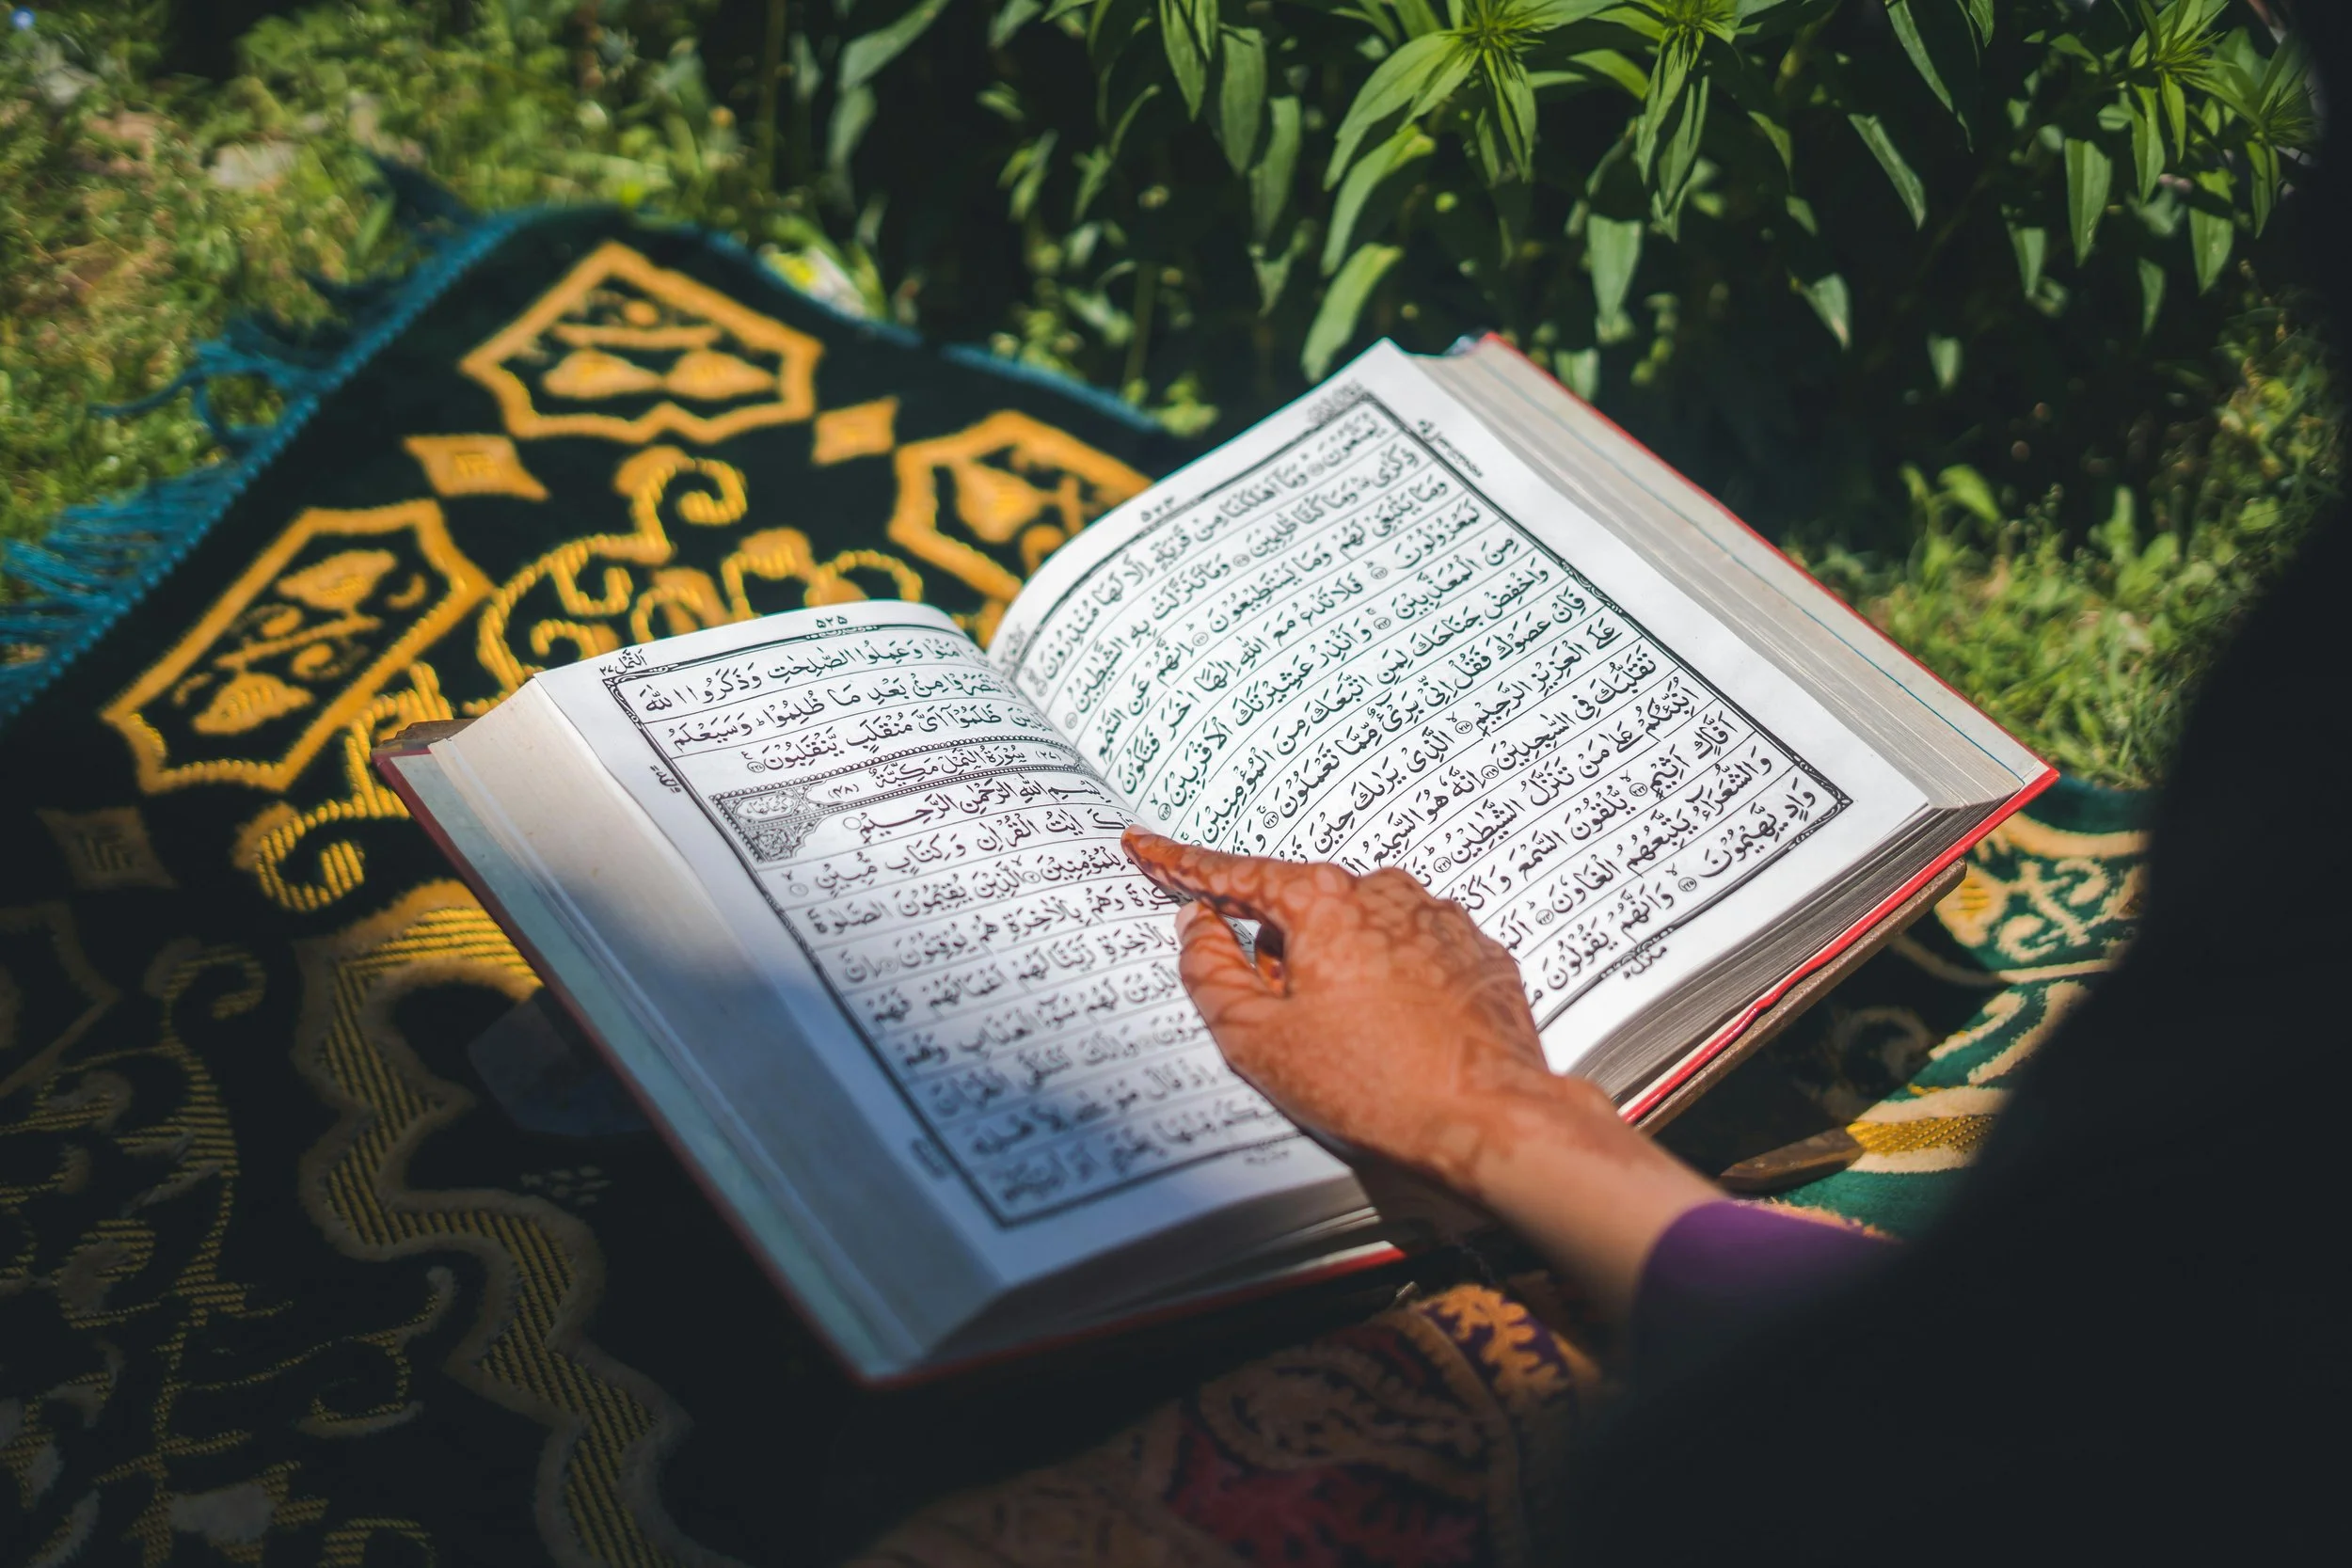 يُمَتَّعُوْنَ وَمَآ اَهْلَكْنَا مِنْ قَرْيَةٍ اِلَّا لَهَا مُنْذِرُوْنَ
ذِكْرٰى وَمَا كُنَّا ظٰلِمِيْنَ وَمَا تَنَزَّلَتْ بِهِ الشَّيٰطِيْنُ
وَمَا يَنْۢبَغِيْ لَهُمْ وَمَا يَسْتَطِيْعُوْنَ اِنَّهُمْ عَنِ السَّمْعِ
لَمَعْزُوْلُوْنَ فَلَا تَدْعُ مَعَ اللهِ اِلٰهًا اٰخَرَ فَتَكُوْنَ
مِنَ الْمُعَذَّبِيْنَ وَاَنْذِرْ عَشِيْرَتَكَ الْاَقْرَبِيْنَ
وَاخْفِضْ جَنَاحَكَ لِمَنِ اتَّبَعَكَ مِنَ الْمُؤْمِنِيْنَ
فَاِنْ عَصَوْكَ فَقُلْ اِنِّيْ بَرِيْٓءٌ مِّمَّا تَعْمَلُوْنَ
عَلَى الْعَزِيْزِ الرَّحِيْمِ الَّذِيْ يَرٰىكَ حِيْنَ
تَقَلُّبَكَ فِي السّٰجِدِيْنَ اِنَّهٗ هُوَ السَّمِيْعُ
اُنَبِّئُكُمْ عَلٰى مَنْ تَنَزَّلُ الشَّيٰطِيْنُ
اَفَّاكٍ اَثِيْمٍ يُّلْقُوْنَ السَّمْعَ
وَالشُّعَرَآءُ يَتَّبِعُهُمُ الْغَاوٗنَ
وَادٍ يَّهِيْمُوْنَ وَاَنَّهُمْ يَقُوْلُوْنَ
منزل ٥
۵۲۵
النمل ۲۷
اٰمَنُوْا وَعَمِلُوا الصّٰلِحٰتِ وَذَكَرُوا اللهَ
مِنْۢ بَعْدِ مَا ظُلِمُوْا وَسَيَعْلَمُ
ظَلَمُوْٓا اَيَّ مُنْقَلَبٍ يَّنْقَلِبُوْنَ
(۲۷) سُوْرَةُ النَّمْلِ مَكِّيَّةٌ (۴۸)
بِسْمِ اللهِ الرَّحْمٰنِ الرَّحِيْمِ
اٰيٰتُ الْقُرْاٰنِ وَكِتَابٍ مُّبِيْنٍ
لِلْمُؤْمِنِيْنَ الَّذِيْنَ يُقِيْمُوْنَ الصَّلٰوةَ
وَهُمْ بِالْاٰخِرَةِ هُمْ يُوْقِنُوْنَ اِنَّ
بِالْاٰخِرَةِ زَيَّنَّا لَهُمْ اَعْمَالَهُمْ فَهُمْ
الَّذِيْنَ لَهُمْ سُوْٓءُ الْعَذَابِ وَهُمْ
وَاِنَّكَ لَتُلَقَّى الْقُرْاٰنَ
اِذْ قَالَ مُوْسٰى لِاَهْلِهٖٓ